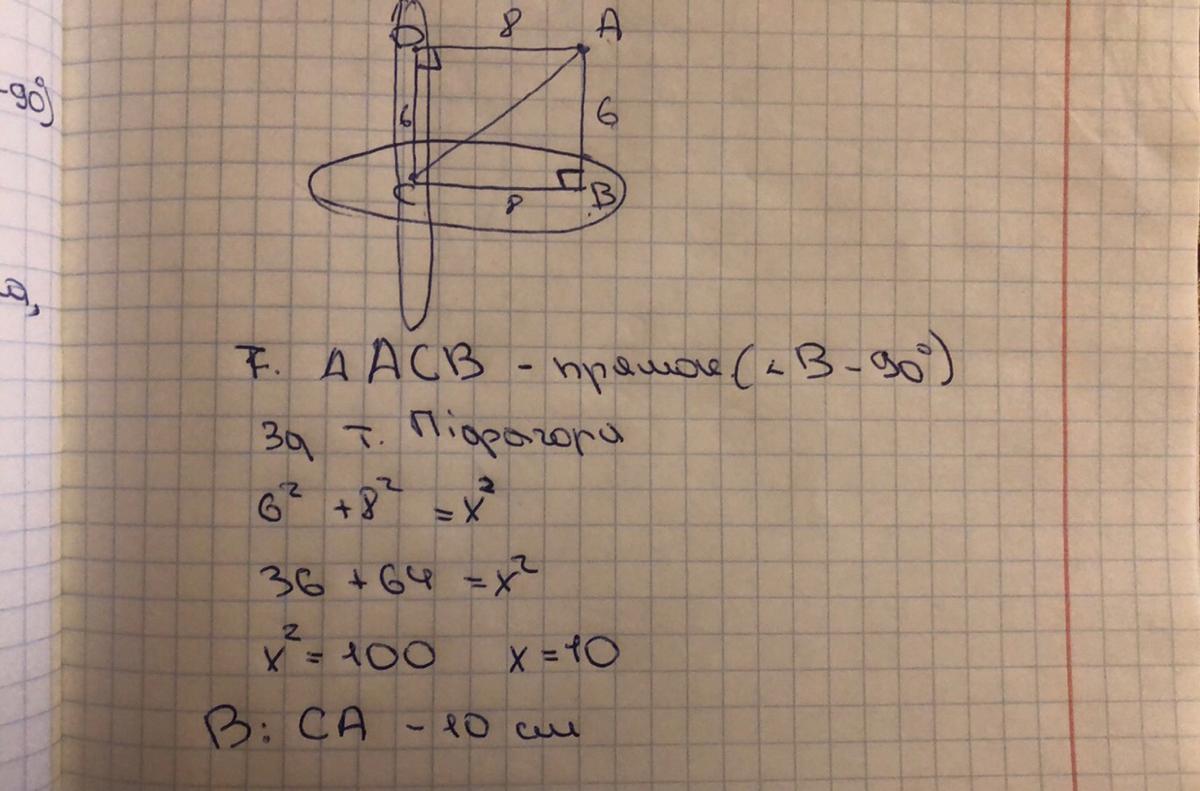 -90°)
а,
D 8 A
6 6
C 8 B
7. Δ ACB - прямок (∠B - 90°)
За т. Підрагора
6² + 8² = x²
36 + 64 = x²
x² = 100 x = 10
В: CA - 10 см